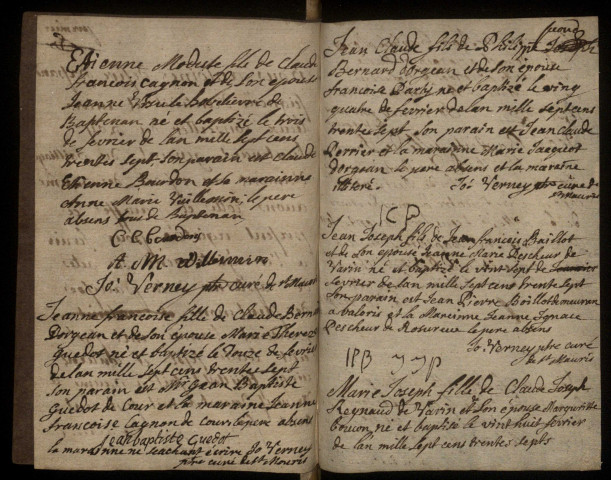 Etienne Modeste fils de Claude
francois cagnon et de son epouse
Jeanne Ursule
né et baptizé le trois
de fevrier de lan mille sept cens
trentes sept son parain est Claude
Etienne Bourdon et la maraienne
Anne Marie Vuillemin le pere
absens tous de
C E Bourdon
A M Willemin
Jo: Verney ptre curé de st Mouris
Jeanne francoise fille de Claude Bernard
Dorgean et de son épouse Marie Therez
guedot né et baptizé le douze de fevrier
de lan mille Sept cens trentes sept
son parain est Mr Jean Baptiste
Guedot de Cour et la maraine Jeanne
francoise Cagnon de cour le pere absens
Jean baptiste Guedot
la maraine ne scachant écrire Jo Verney
ptre curé de St Mouris
second
Jean Claude fils de Philippe Joseph
Bernard dorgean et de son épouse
francoise né et baptizé le vinq
quatre de fevrier de lan mille sept cens
trente sept son parain est Jean Claude
Perrier et la maraine Marie Jacquot
dorgean le pere absens et la maraine
illiteré. Jo: Verney ptre curé de
st Mouris
ICP
Jean Joseph fils de Jean francois Boillot
et de son epouse Jeanne Marie Pescheur de
Varin né et baptizé le vint sept de
fevrier de lan mille Sept cens trente sept
son parain est Jean Pierre Boillot de mouron
et la Mareinne Jeanne Ignace
Pescheur de Rosureux le pere absens
Jo: Verney ptre curé
de St Mouris
IPB JJP
Marie Joseph fille de Claude Joseph
Reynaud de Varin et son épouse Margueritte
né et baptizé le vint huit fevrier
de lan mille Sept cens trentes sept